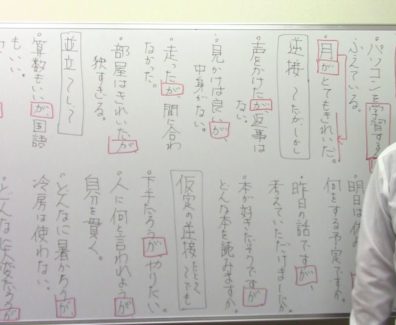 ・パソコンを学習する
ふえている。
・月がとてもきれいだ。
逆接 ～したが、しかし
・声をかけたが、返事は
ない。
・見かけは良いが、
中身がない。
・走ったが、間に合わ
なかった。
・部屋はきれいだが
狭すぎる。
並立 ～し、～し
・算数もいいが、国語
もいい。
明日は
何をする予定ですか。
・昨日の話ですが、
考えていただけましたか
・本が好きだそうですが
どんな本を読みますか。
仮定の逆接 たとえ～しても
・下手だろうがやりたい。
・人に何と言われようが
自分を貫く。
・どんなに暑かろうが
冷房は使わない。
・どんなに大変だろうが